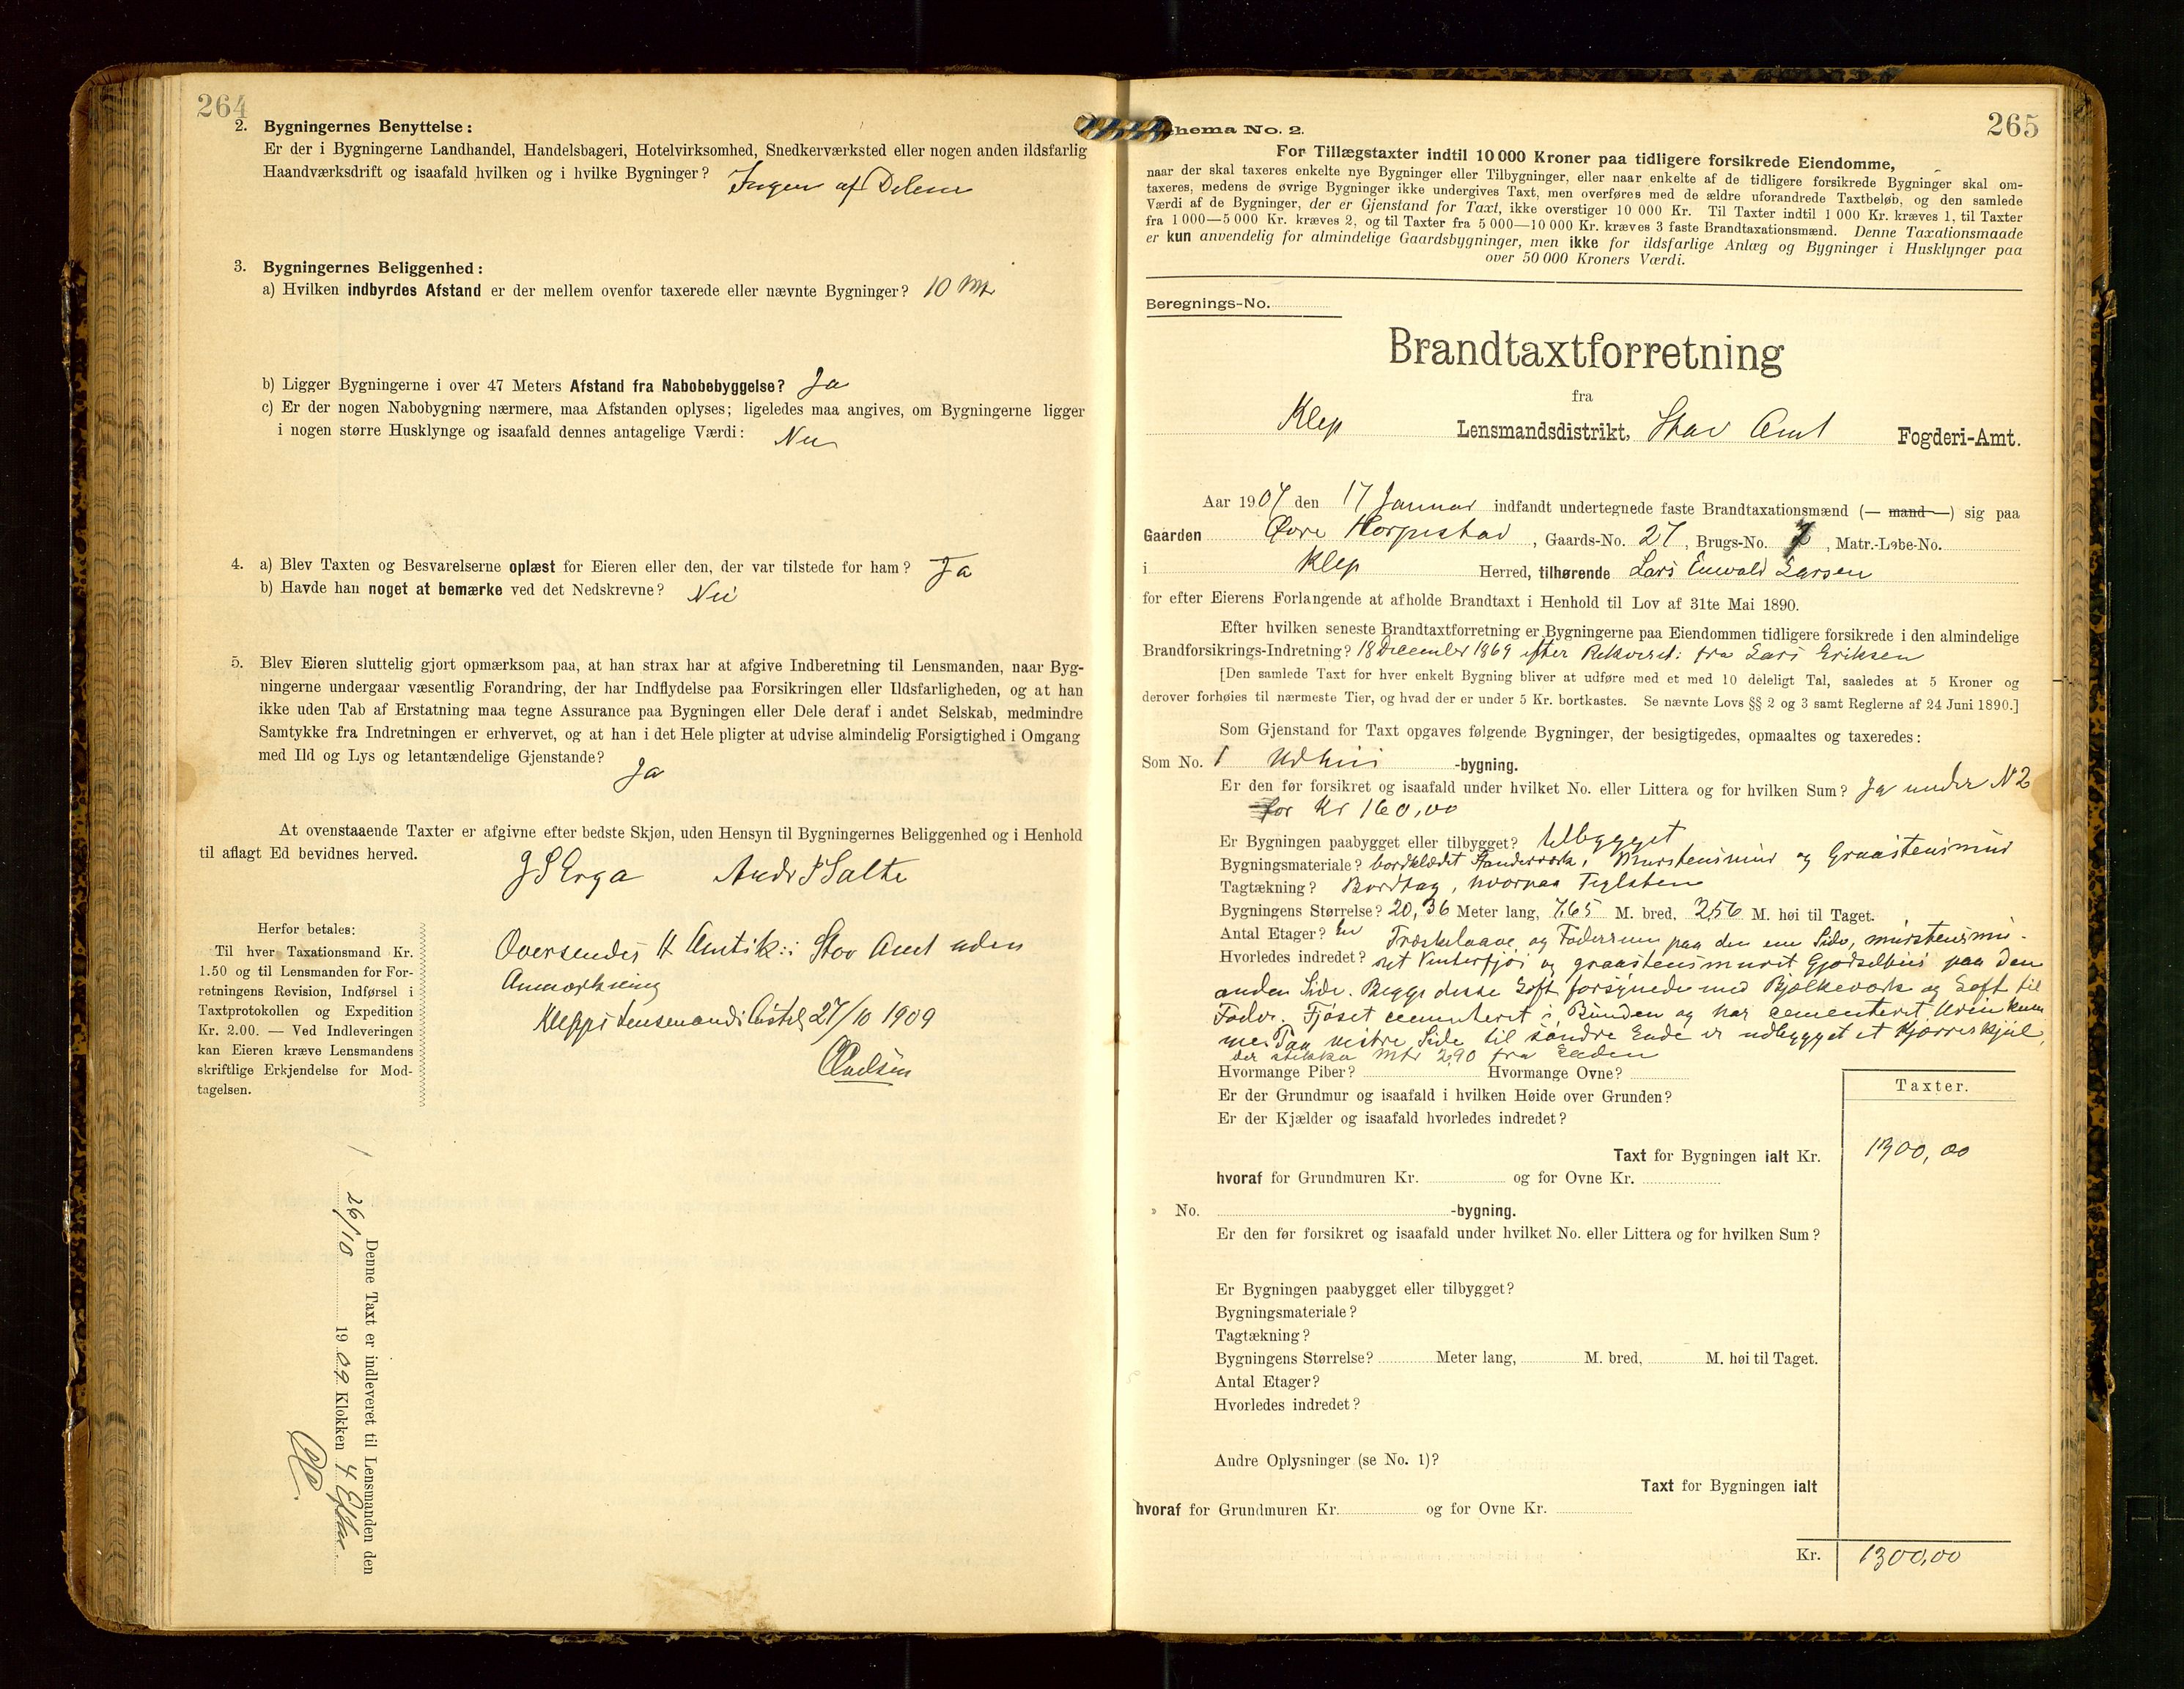 264
2. Bygningernes Benyttelse:
Er der i Bygningerne Landhandel, Handelsbageri, Hotelvirksomhed, Snedkerværksted eller nogen anden ildsfarlig
Haandværksdrift og isaafald hvilken og i hvilke Bygninger? Ingen af Delene
3. Bygningernes Beliggenhed:
a) Hvilken indbyrdes Afstand er der mellem ovenfor taxerede eller nævnte Bygninger? 10 Mtr
b) Ligger Bygningerne i over 47 Meters Afstand fra Nabobebyggelse? Ja
c) Er der nogen Nabobygning nærmere, maa Afstanden oplyses; ligeledes maa angives, om Bygningerne ligger
i nogen større Husklynge og isaafald dennes antagelige Værdi: Nei
4. a) Blev Taxten og Besvarelserne oplæst for Eieren eller den, der var tilstede for ham? Ja
b) Havde han noget at bemærke ved det Nedskrevne? Nei
5. Blev Eieren sluttelig gjort opmærksom paa, at han strax har at afgive Indberetning til Lensmanden, naar Byg-
ningerne undergaar væsentlig Forandring, der har Indflydelse paa Forsikringen eller Ildsfarligheden, og at han
ikke uden Tab af Erstatning maa tegne Assurance paa Bygningen eller Dele deraf i andet Selskab, medmindre
Samtykke fra Indretningen er erhvervet, og at han i det Hele pligter at udvise almindelig Forsigtighed i Omgang
med Ild og Lys og letantændelige Gjenstande? Ja
At ovenstaaende Taxter er afgivne efter bedste Skjøn, uden Hensyn til Bygningernes Beliggenhed og i Henhold
til aflagt Ed bevidnes herved.
J S Erga Andr P Salte
Herfor betales:
Til hver Taxationsmand Kr.
1.50 og til Lensmanden for For-
retningens Revision, Indførsel i
Taxtprotokollen og Expedition
Kr. 2.00. — Ved Indleveringen
kan Eieren kræve Lensmandens
skriftlige Erkjendelse for Mod-
tagelsen.
Oversendes Stav Amt uden
Anmærkning
Klepps Lensmands 27/10 1909
Denne Taxt er indleveret til Lensmanden den
26/10 1909 Klokken 4 Efter.
265
Schema No. 2.
For Tillægstaxter indtil 10 000 Kroner paa tidligere forsikrede Eiendomme,
naar der skal taxeres enkelte nye Bygninger eller Tilbygninger, eller naar enkelte af de tidligere forsikrede Bygninger skal om-
taxeres, medens de øvrige Bygninger ikke undergives Taxt, men overføres med de ældre uforandrede Taxtbeløb, og den samlede
Værdi af de Bygninger, der er Gjenstand for Taxt, ikke overstiger 10 000 Kr. Til Taxter indtil 1 000 Kr. kræves 1, til Taxter
fra 1 000—5 000 Kr. kræves 2, og til Taxter fra 5 000—10 000 Kr. kræves 3 faste Brandtaxationsmænd. Denne Taxationsmaade
er kun anvendelig for almindelige Gaardsbygninger, men ikke for ildsfarlige Anlæg og Bygninger i Husklynger paa
over 50 000 Kroners Værdi.
Beregnings-No.
Brandtaxtforretning
fra
Klep Lensmandsdistrikt, Stav Amt Fogderi-Amt.
Aar 1907 den 17 Januar indfandt undertegnede faste Brandtaxationsmænd (— mand —) sig paa
Gaarden Øvre Horpestad, Gaards-No. 27, Brugs-No. 7, Matr.-Løbe-No.
i Klep Herred, tilhørende Lars Enevald Larsen
for efter Eierens Forlangende at afholde Brandtaxt i Henhold til Lov af 31te Mai 1890.
Efter hvilken seneste Brandtaxtforretning er Bygningerne paa Eiendommen tidligere forsikrede i den almindelige
Brandforsikrings-Indretning? 18 December 1869 efter Rekvisit: fra Lars Eriksen
[Den samlede Taxt for hver enkelt Bygning bliver at udføre med et med 10 deleligt Tal, saaledes at 5 Kroner og
derover forhøies til nærmeste Tier, og hvad der er under 5 Kr. bortkastes. Se nævnte Lovs §§ 2 og 3 samt Reglerne af 24 Juni 1890.]
Som Gjenstand for Taxt opgaves følgende Bygninger, der besigtigedes, opmaaltes og taxeredes:
Som No. 1 Udhus -bygning.
Er den før forsikret og isaafald under hvilket No. eller Littera og for hvilken Sum? Ja under N 2
for Kr 160,00
Er Bygningen paabygget eller tilbygget? Ubygget
Bygningsmateriale? bordklædt Standerværk, Murstensmur og Graastensmur
Tagtækning? Bordtag, hvorpaa Teglsten
Bygningens Størrelse? 20,36 Meter lang, 7,65 M. bred, 2,56 M. høi til Taget.
Antal Etager? En
Træskelaave og Foderrum paa den ene Side, murstensmu-
Hvorledes indredet? ret Vinterfjøs og graastensmuret Gjødselhus paa den
anden Side. Begge disse Loft forsynede med Bjælkeværk og Loft til
Foder. Fjøset cementeret i Bunden og har cementeret Urinkum
me. Paa vestre Side til søndre Ende er udbygget et Kjærreskjul,
der stikker Mtr 2,90 fra Enden
Hvormange Piber? Hvormange Ovne?
Er der Grundmur og isaafald i hvilken Høide over Grunden?
Er der Kjælder og isaafald hvorledes indredet?
Taxter.
Taxt for Bygningen ialt Kr. 1300,00
hvoraf for Grundmuren Kr. og for Ovne Kr.
» No. -bygning.
Er den før forsikret og isaafald under hvilket No. eller Littera og for hvilken Sum?
Er Bygningen paabygget eller tilbygget?
Bygningsmateriale?
Tagtækning?
Bygningens Størrelse? Meter lang, M. bred, M. høi til Taget.
Antal Etager?
Hvorledes indredet?
Andre Oplysninger (se No. 1)?
Taxt for Bygningen ialt
hvoraf for Grundmuren Kr. og for Ovne Kr.
Kr. 1300,00